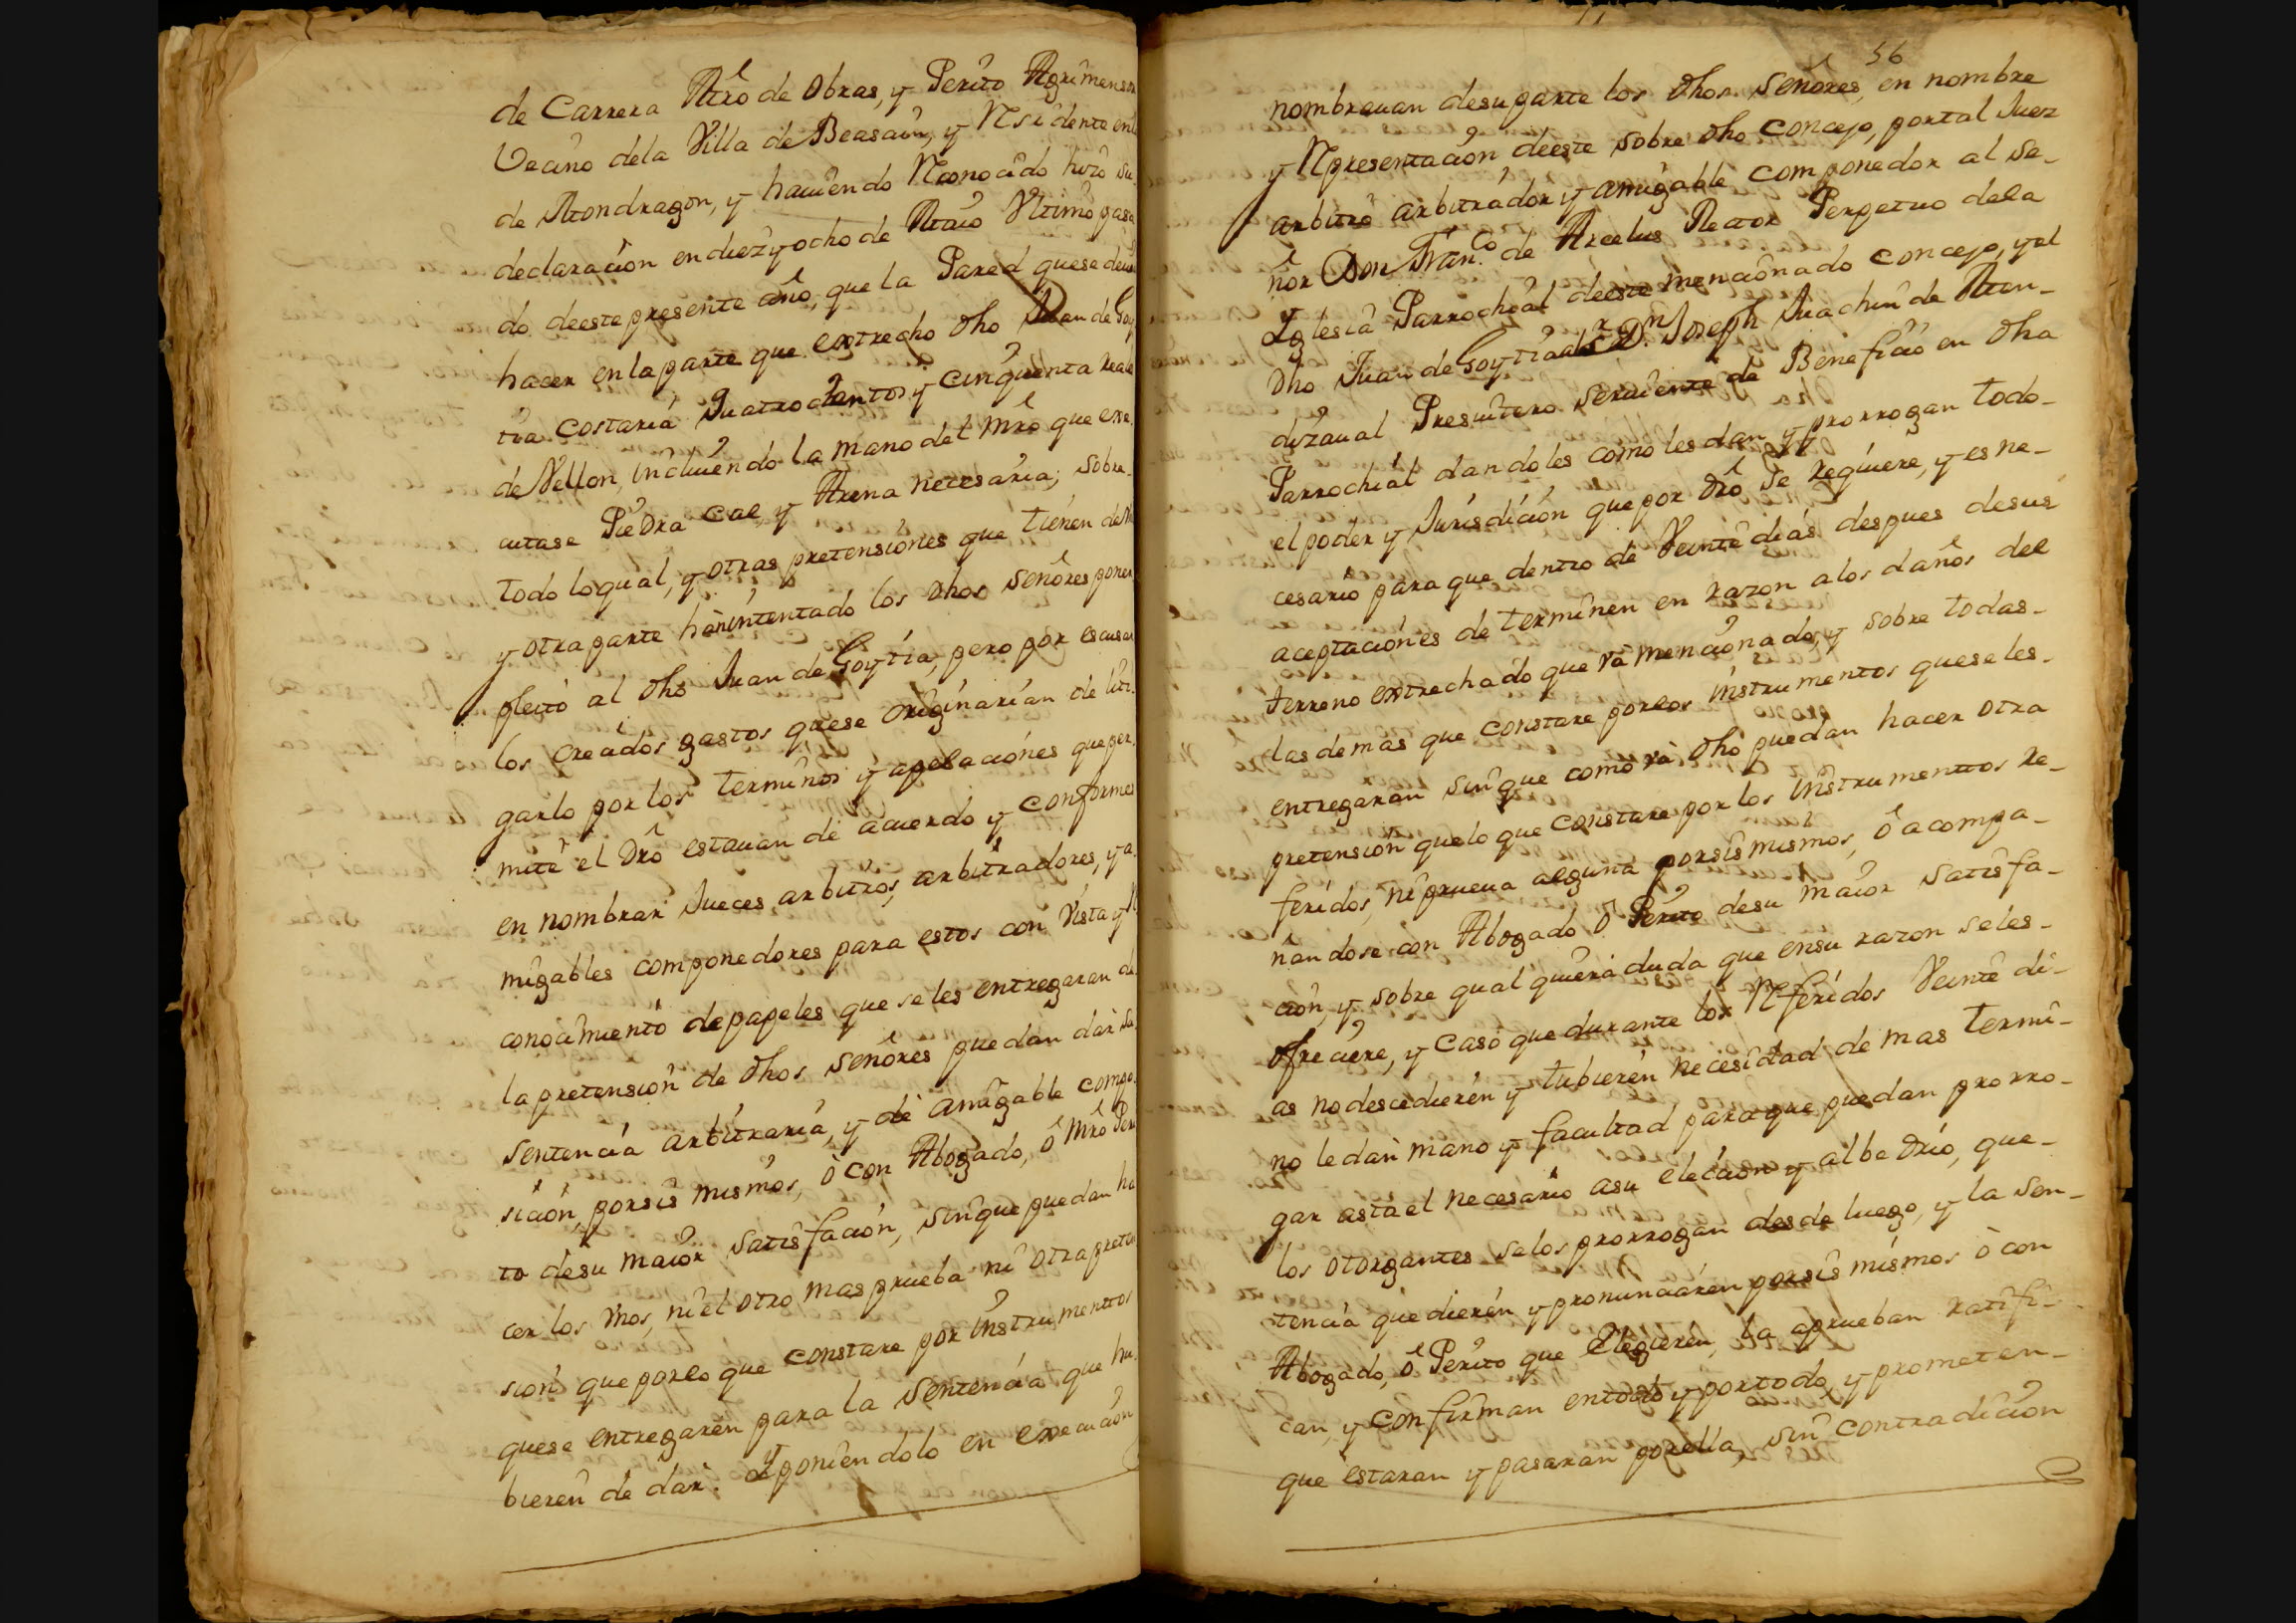 de Carrera Mrô de Obras, y Perito Agrimensor
Vecino dela Villa de Beasain, y Residente en la
de Mondragon, y hauiendo Reconocido hizo su
declaracion en diez y ocho de Maio Ultimo pasa
do deeste presente año, que la Pared quese deuia
hacer en la parte que extrecho dho Juan de Goy
tia costaria Quatrocientos y cinquenta reales
de Vellon, incluiendo la mano del Mrô que exe
cutase Piedra cal y Arena necesaria; sobre
todo loqual, y otras pretensiones que tienen de
y otra parte han intentado los dhos señores poner
pleito al dho Juan de Goytia, pero por escusar
los creados gastos quese originarian de liti
garlo por los terminos y apelaciones que per
mite el Drô estauan de acuerdo y conformes
en nombrar Jueces arbitros, arbitradores, y a
migables componedores para estos con Vista y Re
conocimiento de papeles que se les entregaran de
la pretension de dhos señores puedan dar su
sentencia arbitraria, y de amigable compo
sición porsis mismos, ò con Abogado, ô Mrô Peri
to desu maior satisfación, sinque puedan ha
cer los Vnos, ni el otro mas prueba ni otra preten
sion que porlo que constare por instrumentos
quese entregaren para la sentencia que hu
bieren de dar. Yponiendolo en execucion
56
nombrauan desuparte los dhos señores, en nombre
y Representacion deeste sobre dho concejo, portal Juez
arbitro arbitrador y amigable componedor al Se-
ñor Don Fran.co de Arcelus Rector Perpetuo dela
Iglesia Parrochial deeste mencionado concejo, y el
dho Juan de Goytia al Sr. Dn. Joseph Juachin de Men-
dizaual Presuitero seruiente de Beneficio en dha
Parrochial dandoles como les dan y prorrogan todo-
el poder y Jurisdición que por Drô se requiere, y es ne-
cesario para que dentro de Veinte dias despues desus
aceptaciones determinen en razon a los daños del
terreno extrechado que va mencionado, y sobre todas-
las demas que constare porlos instrumentos quese les-
entregaran sinque como va dho puedan hacer otra
pretension quelo que constare por los instrumentos re-
feridos, ni prueua alguna porsis mismos, ô acompa-
ñandose con Abogado ô Perito desu maior satisfa-
cion, y sobre qual quiera duda que ensu razon seles-
ofreciere, y caso que durante los Referidos Veinte di-
as no descidieren y tubieren necesidad de mas termi-
no le dan mano y facultad para que puedan prorro-
gar asta el necesario asu elecion y albedrio, que-
los otorgantes selos prorrogan desde luego, y la sen-
tencia que dieren y pronunciaren porsis mismos ò con
Abogado, ô Perito que Elegieren, la aprueban ratifi-
can, y confirman entodo y portodo, y prometen-
que estaran y pasaran porella, sin contradicion